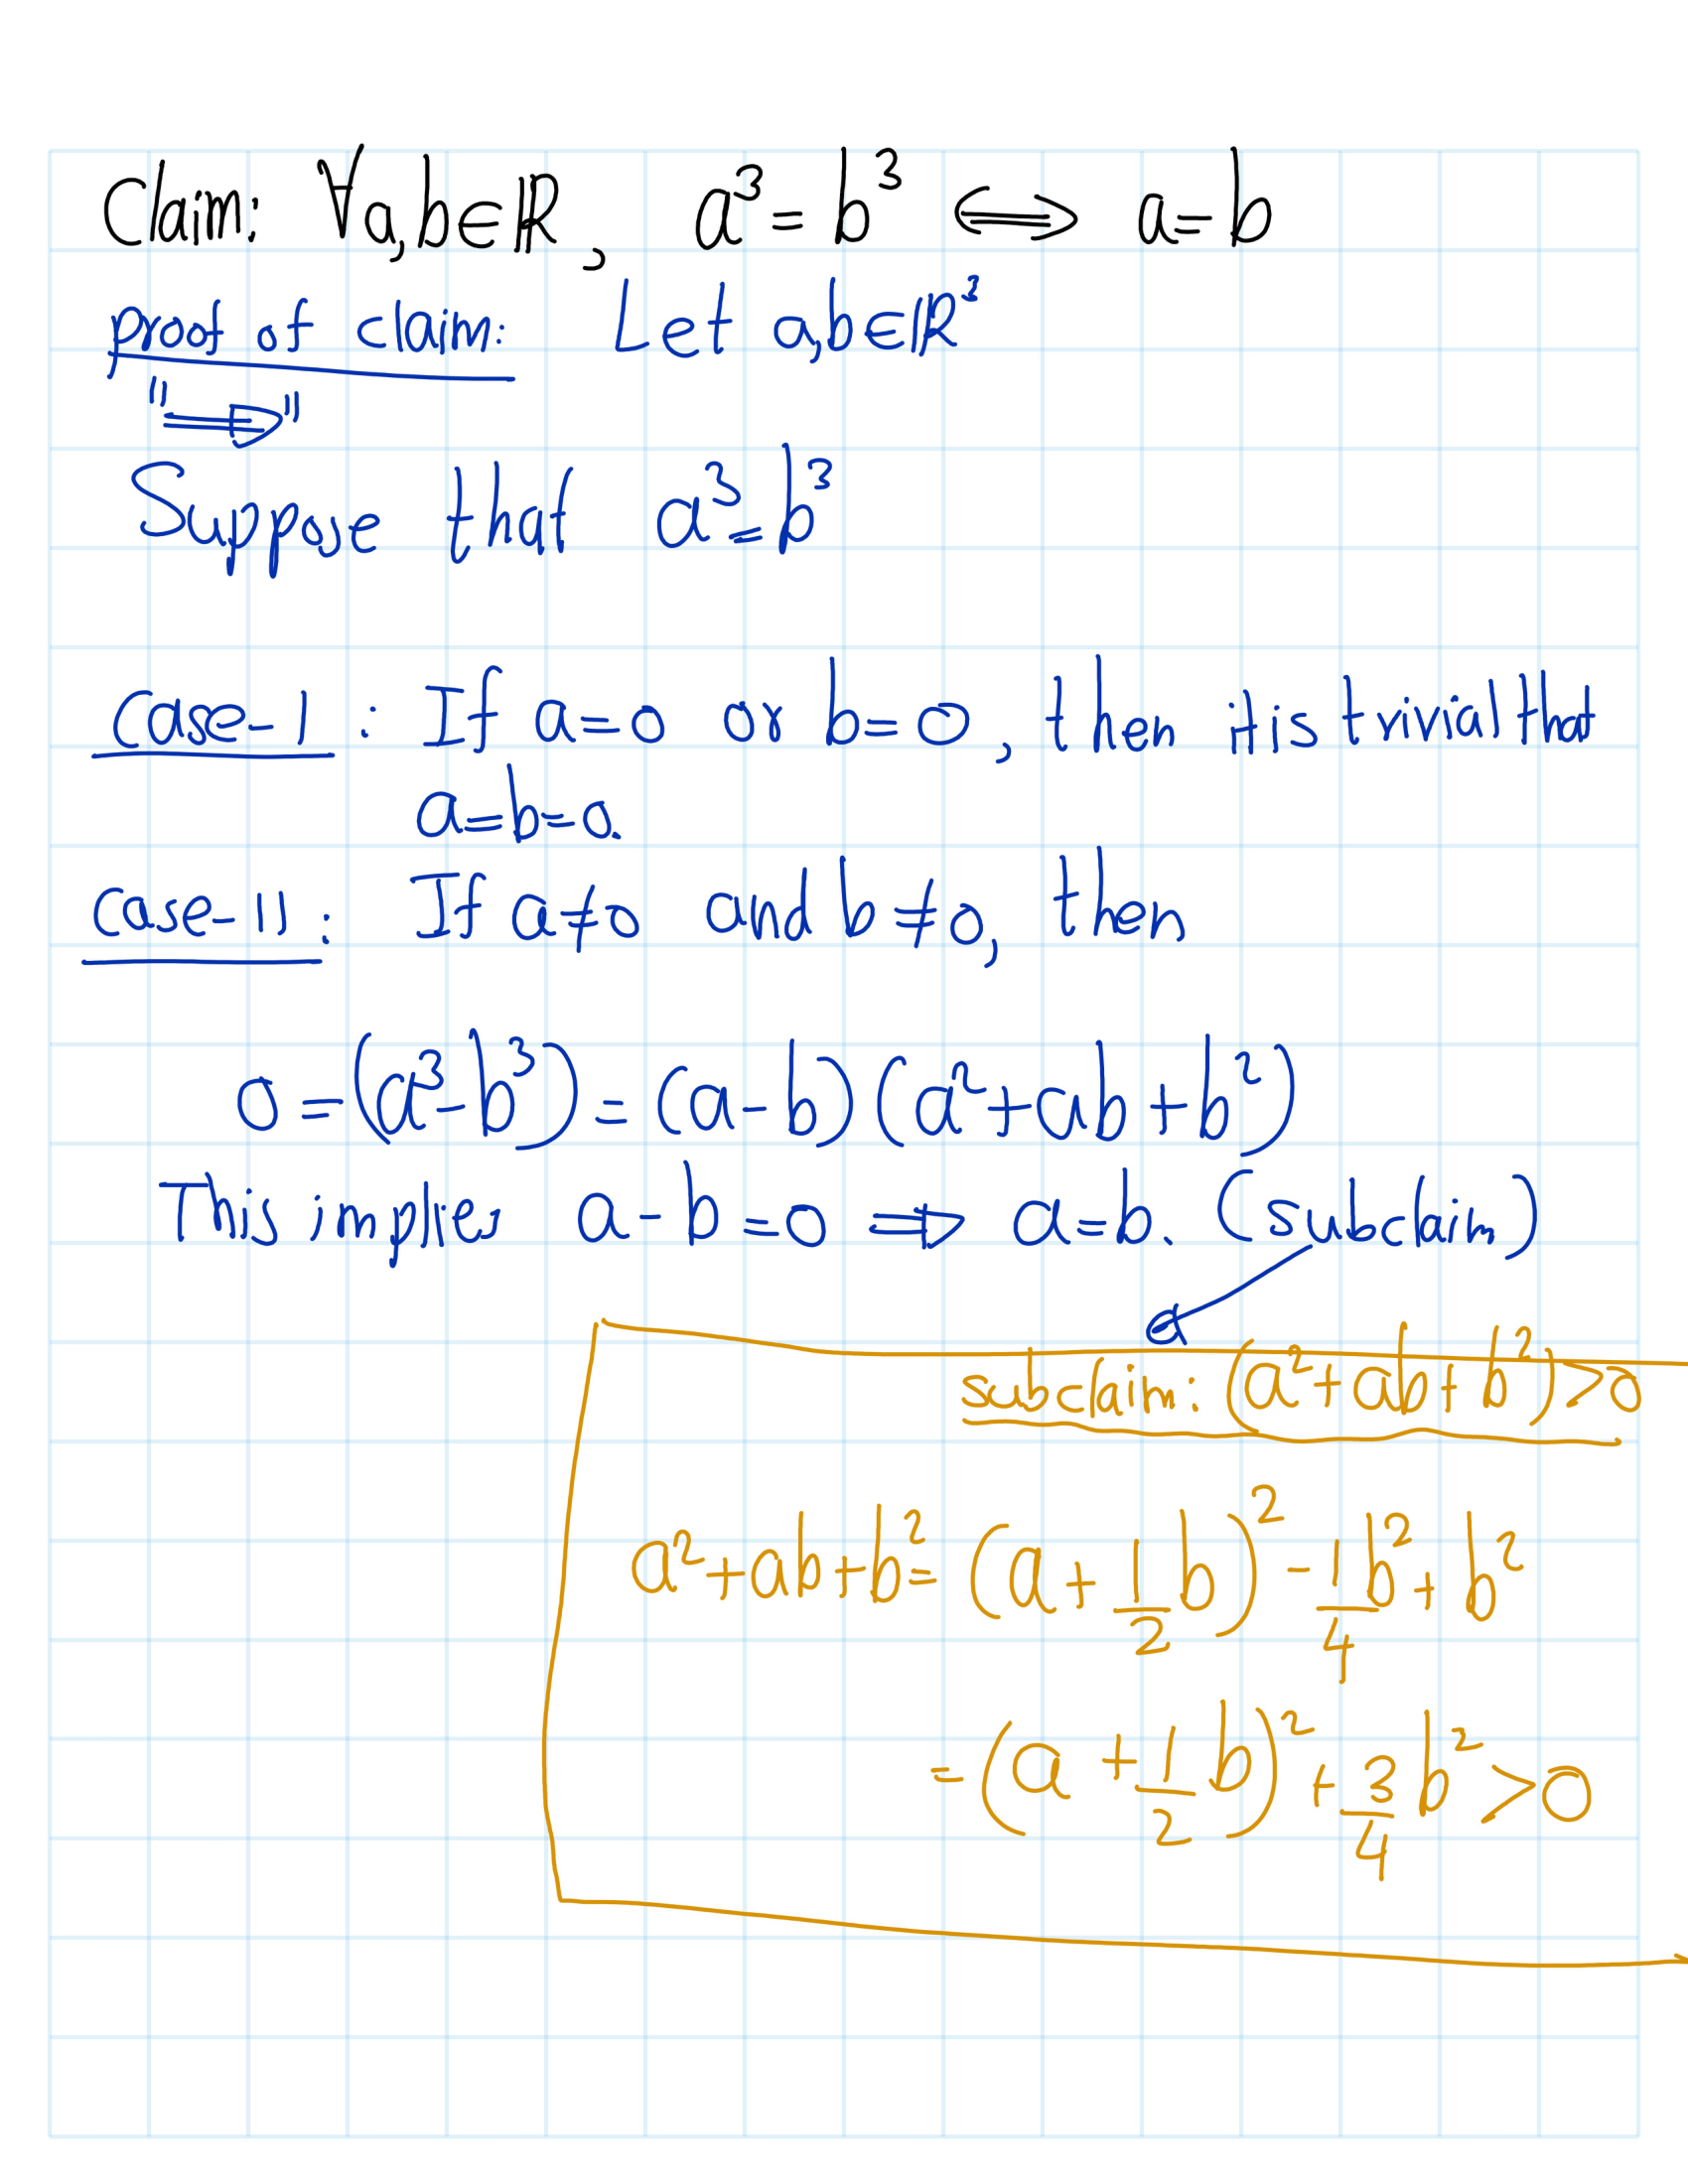 Claim: ∀a,b∈ℝ, a³=b³ ⟺ a=b
proof of claim: Let a,b∈ℝ²
"⟹"
Suppose that a³=b³
case-I: If a=0 or b=0, then it is trivial that
a=b=0.
case-II: If a≠0 and b≠0, then
0=(a³-b³)=(a-b)(a²+ab+b²)
This implies a-b=0 ⟹ a=b. (subclaim)
subclaim: (a²+ab+b²)>0
a²+ab+b²=(a+1/2 b)²-1/4 b²+b²
=(a+1/2 b)²+3/4 b²>0